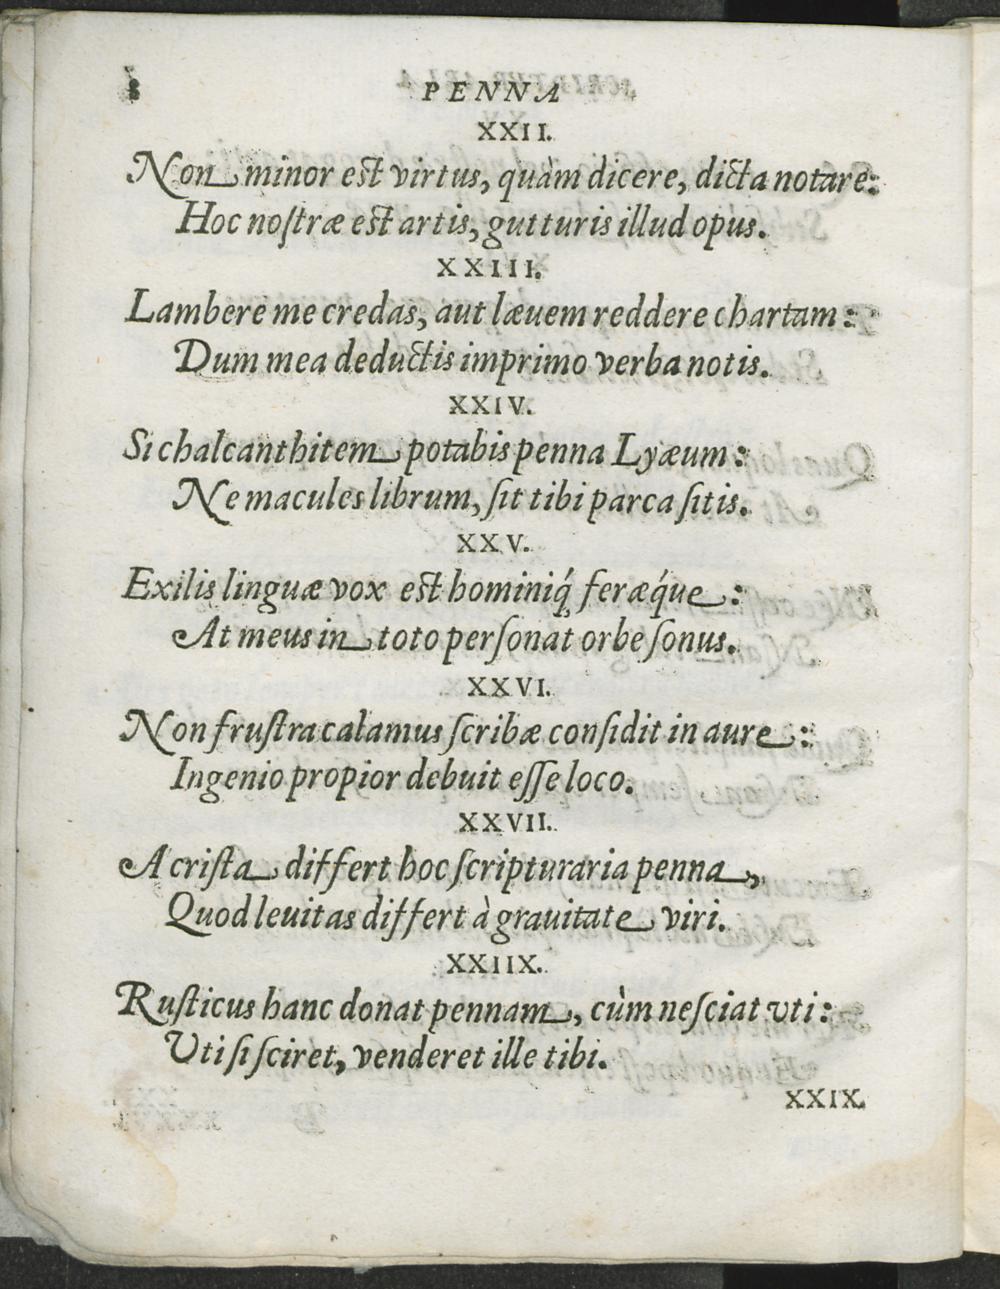 8
PENNA
XXII.
Non minor est virtus, quàm dicere, dicta notare:
Hoc nostræ est artis, gutturis illud opus.
XXIII.
Lambere me credas, aut læuem reddere chartam:
Dum mea deductis imprimo verba notis.
XXIV.
Si chalcanthitem potabis penna Lyæum:
Ne macules librum, sit tibi parca sitis.
XXV.
Exilis linguæ vox est hominiq́ feræq́ue:
At meus in toto personat orbe sonus.
XXVI.
Non frustra calamus scribæ considit in aure:
Ingenio propior debuit esse loco.
XXVII.
A crista differt hoc scripturaria penna,
Quod leuitas differt à grauitate viri.
XXIIX.
Rusticus hanc donat pennam, cùm nesciat vti:
Vti si sciret, venderet ille tibi.
XXIX.